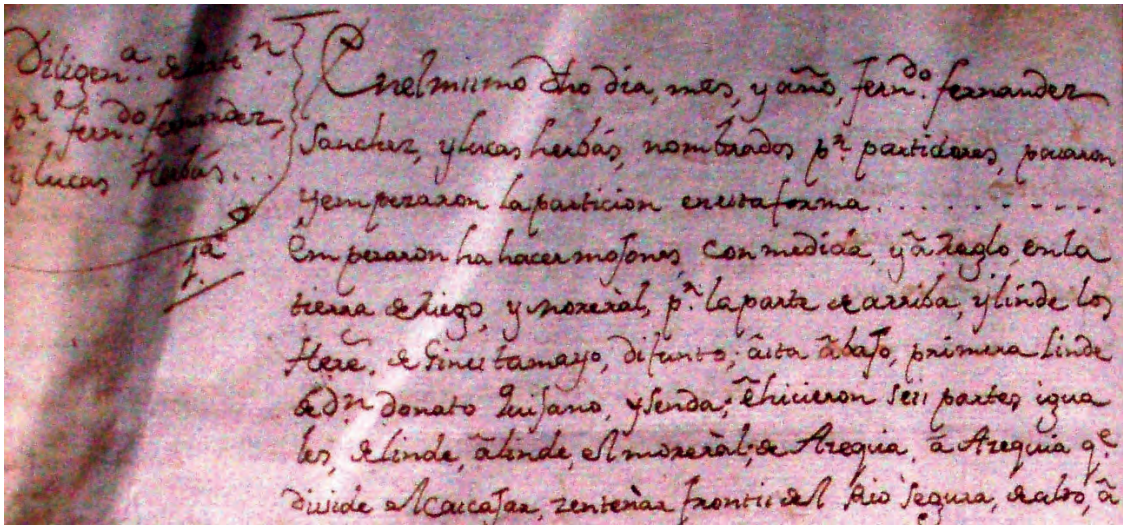 Diligen.ª de parti.ⁿ
p.ʳ fern.ᵈᵒ fernander,
y lucas Herbás...
1ª
En el mismo dho dia, mes, y año, fern.ᵈᵒ fernander
Sancher, y lucas herbás, nombrados p.ʳ partidores, pasaron
y emperaron la particion en esta forma..........
Emperaron ha hacer mojones, con medida, y a reglo, en la
tierra de riego, y moreral, p.ʳ la parte de arriba, y linde los
Here.ˢ de Gines tamayo, difunto; asta abajo, primera linde
de dⁿ donato Quijano, y senda; e hicieron seis partes igua
les, de linde, a linde, el moreral; de Arequia, a Arequia q.ᵉ
divide el zentenar frontis del Rio Segura, de alto, a